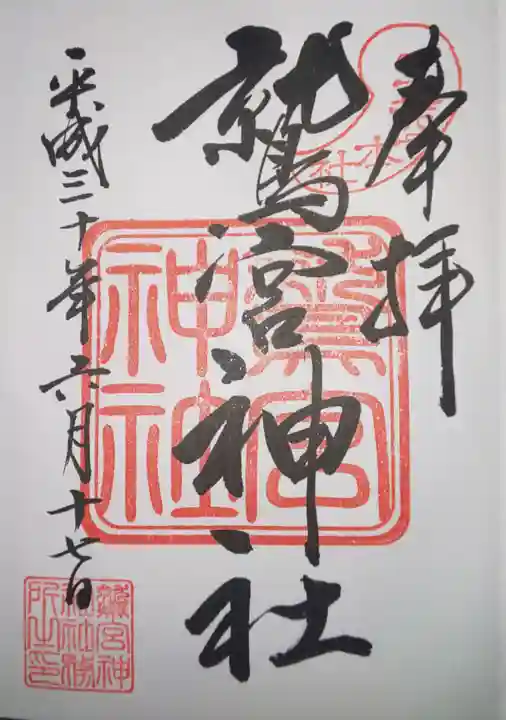 奉拝
鷲宮神社
平成三十年六月十七日
鷲宮
神社
鷲宮神
社社務
所之印